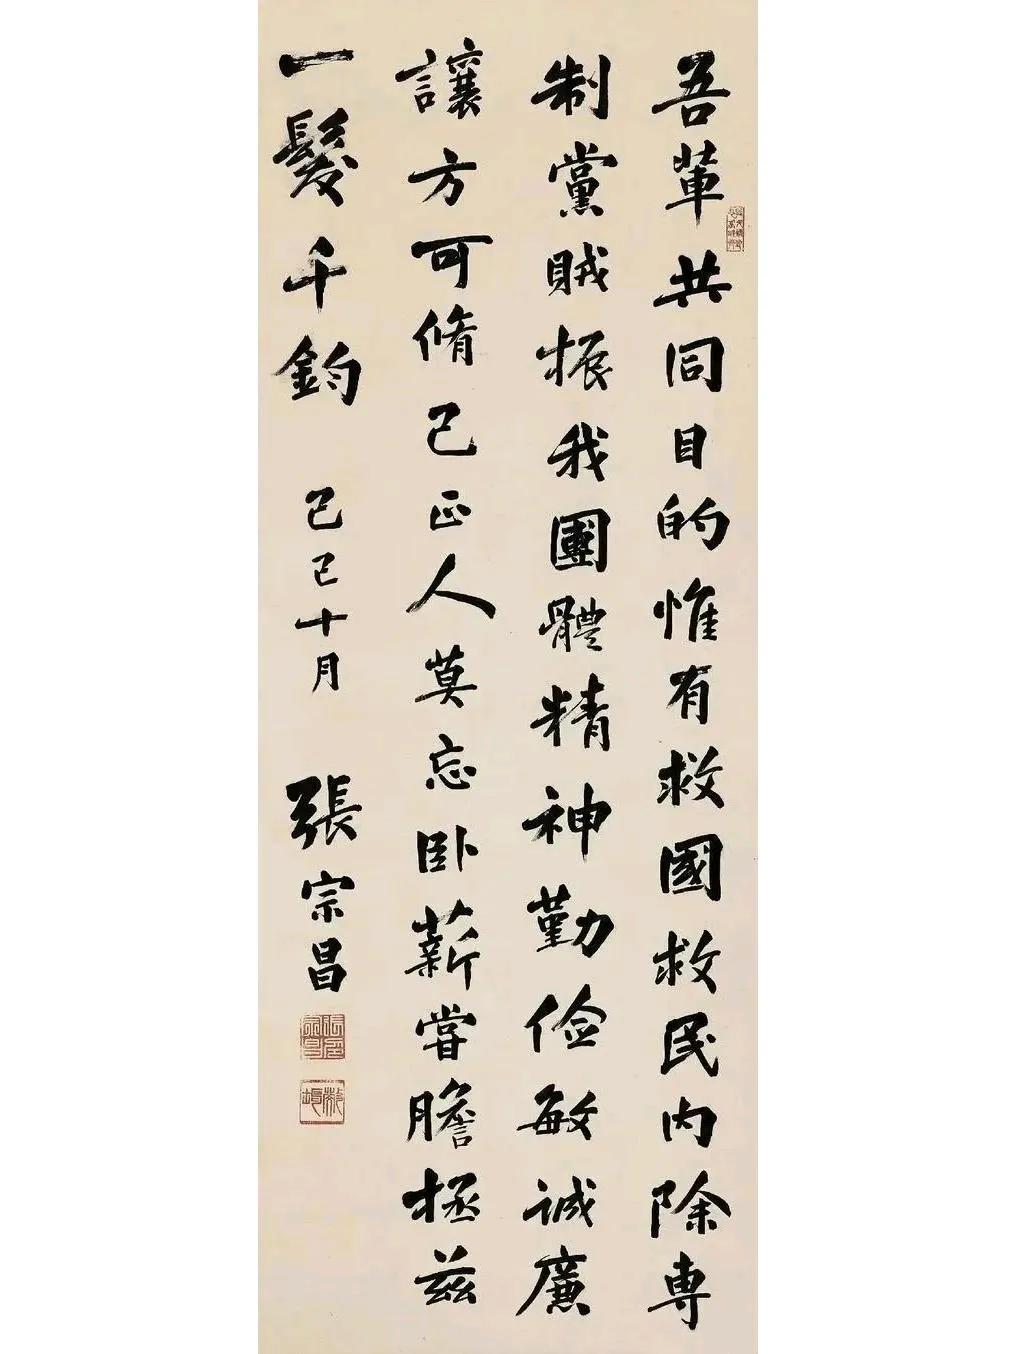 吾輩共同目的惟有救國救民內除専
制黨賊振我團體精神勤儉敏誠廉
讓方可脩己正人莫忘卧薪嘗膽拯茲
一髮千鈞 己巳十月 張宗昌
張宗昌